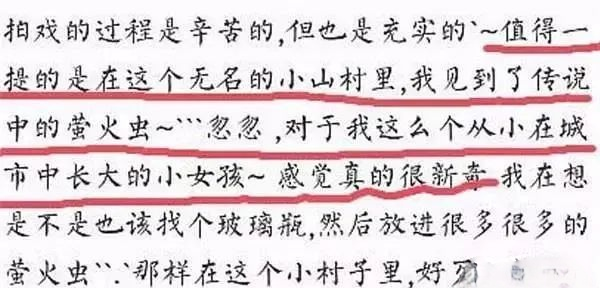 拍戏的过程是辛苦的,但也是充实的`~值得一
提的是在这个无名的小山村里,我见到了传说
中的萤火虫~```忽忽,对于我这么个从小在城
市中长大的小女孩~感觉真的很新奇 我在想
是不是也该找个玻璃瓶,然后放进很多很多的
萤火虫``.`那样在这个小村子里,好